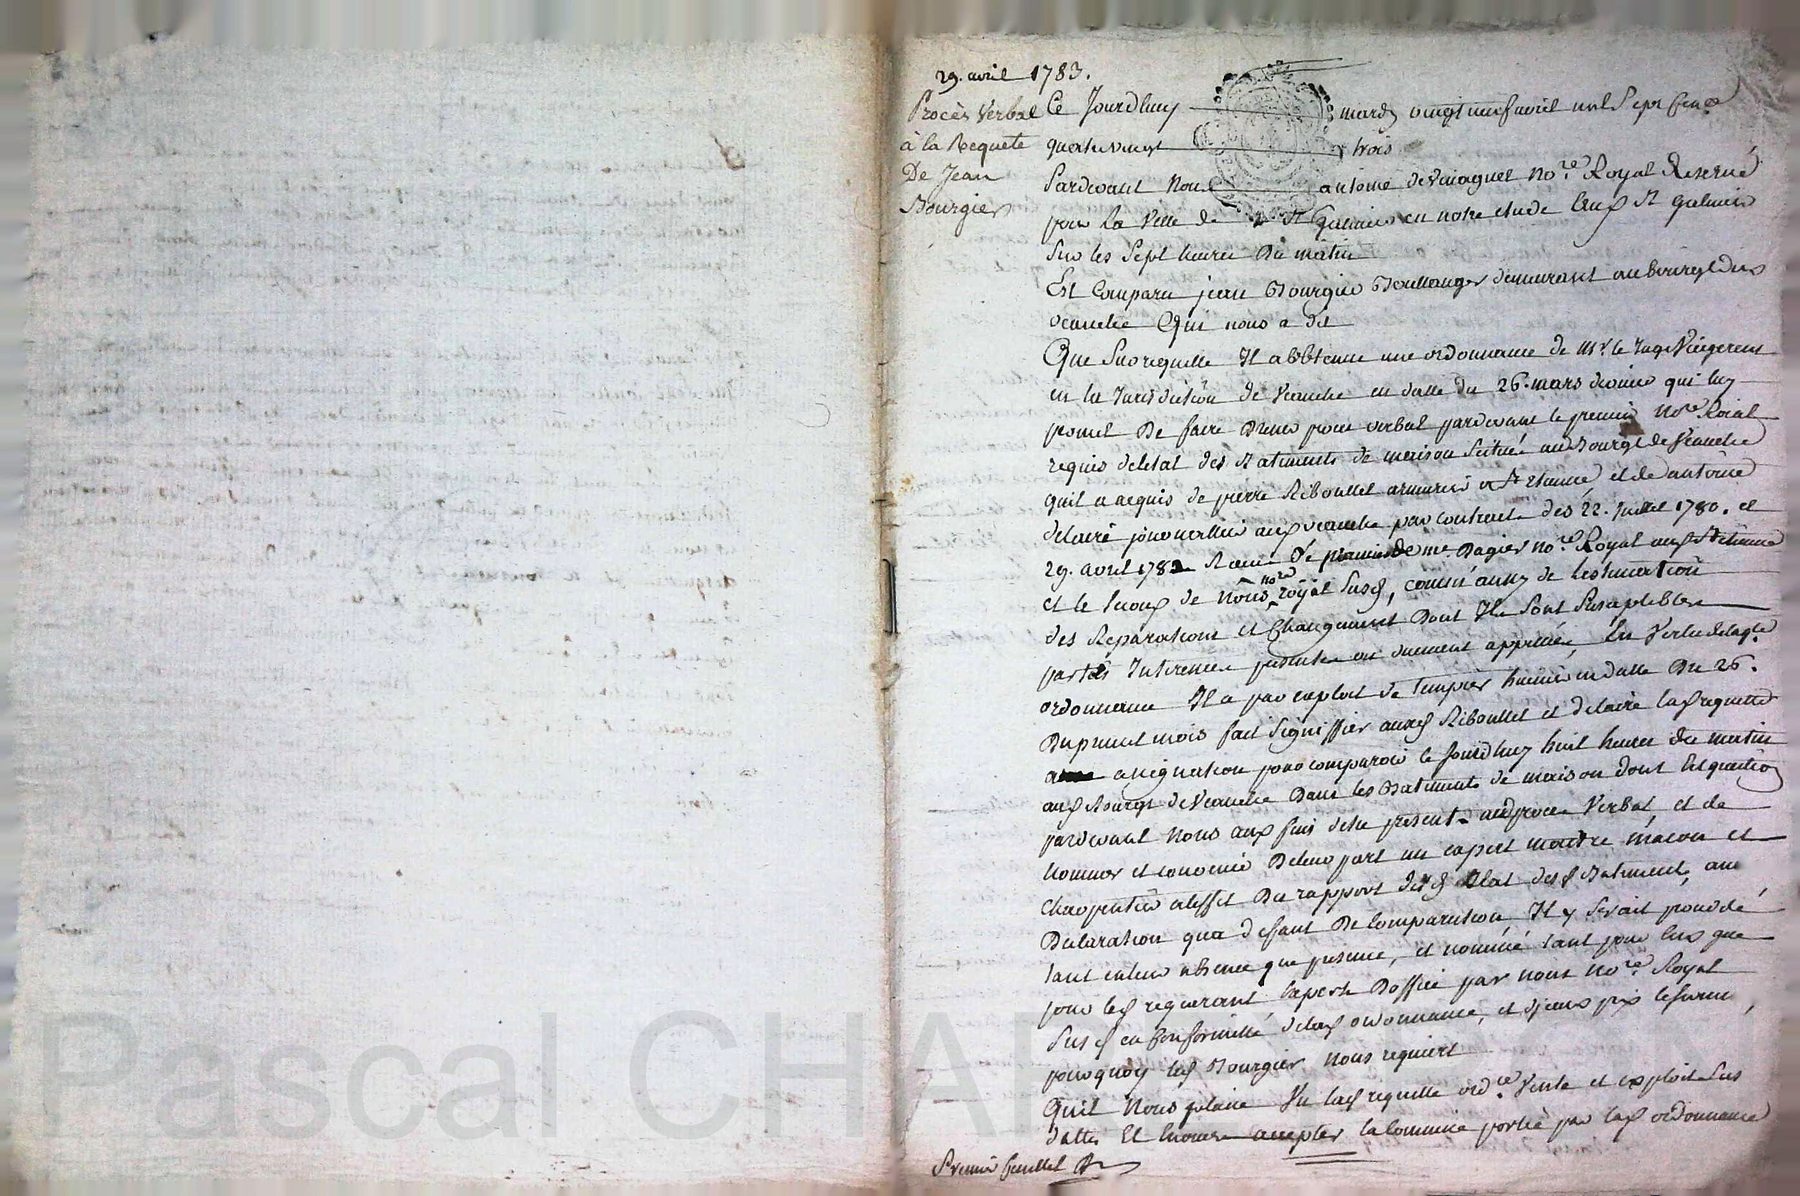 29. avril 1783.
Procès Verbal
à la Requete
De Jean
Bourgier
Ce Jourdhuy mardy vingt neuf avril mil Sept Cens
quatrevingt trois
Pardevant Nous antoine devinaguet No.re Royal Reservé
pour La Ville de St Galmier en notre etude aud St Galmier
Sur les Sept heures Du matin
Est Comparu jean Bourgier Boullanger demeurant au bourg de
veauche Qui nous a dit
Que Sur requette Il a obtenue une ordonnance de Mr. le Juge
en la Jurisdiction de Veauche en datte du 26. mars dernier qui luy
permet De faire Dresser procès verbal pardevant le premier No.re Roial
requis deletat des Batiments de maison Scitué au Bourg de Veauche
quil a acquis de pierre Riboullet armurier a St etienne et de antoine
delaire journallier aud veauche par contracts des 22. Juillet 1780. et
29. avril 1782 Recu le premier De me. Dagier no.re Royal aud St étienne
et le Second de Nous no.re royal Susd, comm'aussy de lestimation
des Reparations et Changement Dont Ils Sont Susceptibles
parties Interessées presentes ou duement appellées, En Vertu de lad.
ordonnance Il a par exploit de Tempier huissier en datte Du 26.
Du present mois fait Signiffier auxd Riboullet et delaire lad requette
assignation pour comparoir ce Jourdhuy huit heures du matin
aud Bourg de Veauche Dans les Batiments de maison dont Est question
pardevant Nous aux fins detre present audproces Verbal et de
nommer et convenir De leur part un expert maitre macon et
charpentier aleffet Du rapport dud Etat desd Batiment, avec
Declaration qua deffaut De Comparution Il y Serait procedé
tant enleur absence que presence, et nommé tant pour Eux que
pour led requerant experts Doffice par nous No.re Royal
Susd en Conformitté delad ordonnance,
pourquoy led Bourgier nous requiert
Quil Nous plaise Vu lad requette ord.ce Vente et exploit Sus
dattés Et Encore accepter la Commission portée par lad ordonnance
Premier feuillet
Pascal